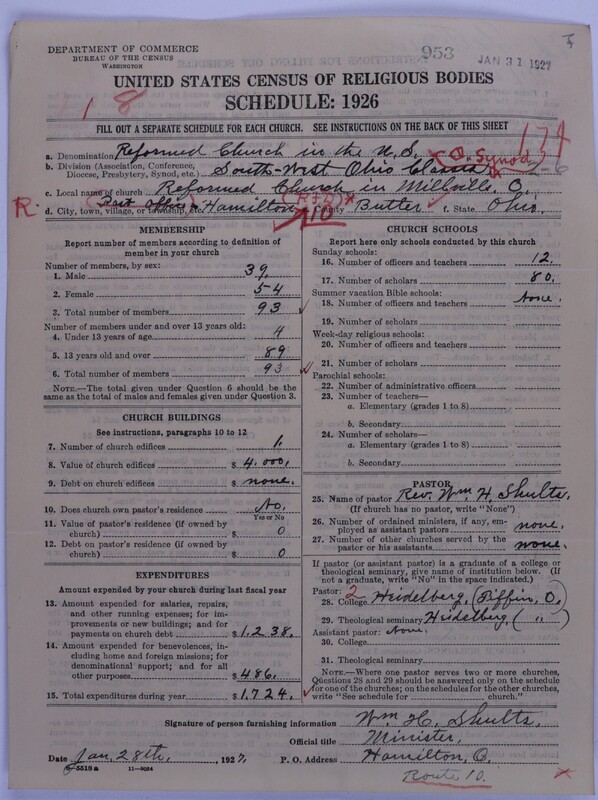 DEPARTMENT OF COMMERCE
BUREAU OF THE CENSUS
WASHINGTON
953
JAN 31 1927
UNITED STATES CENSUS OF RELIGIOUS BODIES
SCHEDULE: 1926
1 8
FILL OUT A SEPARATE SCHEDULE FOR EACH CHURCH. SEE INSTRUCTIONS ON THE BACK OF THIS SHEET
134
a. Denomination Reformed Church in the U.S.
b. Division (Association, Conference, Diocese, Presbytery, Synod, etc.) South-West Ohio Classis O. Synod
c. Local name of church Reformed Church in Millville, O.
R. d. City, town, village, or township, etc. Post Office Hamilton (RFD) 10 County Butler f. State Ohio.
MEMBERSHIP
Report number of members according to definition of
member in your church
Number of members, by sex:
1. Male 39,
2. Female 54
3. Total number of members 93
Number of members under and over 13 years old:
4. Under 13 years of age 4
5. 13 years old and over 89
6. Total number of members 93
NOTE.—The total given under Question 6 should be
same as the total of males and females given under Question 3.
CHURCH BUILDINGS
See instructions, paragraphs 10 to 12
7. Number of church edifices 1.
8. Value of church edifices $ 4,000,
9. Debt on church edifices $ none.
10. Does church own pastor's residence No.
Yes or No
11. Value of pastor's residence (if owned by
church) $ 0
12. Debt on pastor's residence (if owned by
church) $ 0
EXPENDITURES
Amount expended by your church during last fiscal year
13. Amount expended for salaries, repairs,
and other running expenses; for im-
provements or new buildings; and for
payments on church debt $ 1,238.
14. Amount expended for benevolences,
including home and foreign missions; for
denominational support; and for all
other purposes $ 486.
15. Total expenditures during year $ 1,724.
CHURCH SCHOOLS
Report here only schools conducted by this church
Sunday schools:
16. Number of officers and teachers 12.
17. Number of scholars 80.
Summer vacation Bible schools:
18. Number of officers and teachers None.
19. Number of scholars
Week-day religious schools:
20. Number of officers and teachers
21. Number of scholars
Parochial schools:
22. Number of administrative officers
23. Number of teachers—
a. Elementary (grades 1 to 8)
b. Secondary
24. Number of scholars—
a. Elementary (grades 1 to 8)
b. Secondary
PASTOR
25. Name of pastor Rev. Wm. H. Shults.
(If church has no pastor, write "None")
26. Number of ordained ministers, if any, em-
ployed as assistant pastors none.
27. Number of other churches served by the
pastor or his assistants none.
If pastor (or assistant pastor) is a graduate of a college or
theological seminary, give name of institution below. (If
not a graduate, write "No" in the space indicated.)
Pastor: 2
28. College Heidelberg, (Tiffin, O.)
29. Theological seminary Heidelberg ( " )
Assistant pastor: None.
30. College
31. Theological seminary
NOTE.—Where one pastor serves two or more churches,
Questions 28 and 29 should be answered only on the schedule
for one of the churches; on the schedules for the other churches,
write "See schedule for church."
Signature of person furnishing information Wm H. Shults,
Official title Minister,
Date Jan. 28th, 1927, P. O. Address Hamilton, O.
8-5518a 11-9024
Route 10.